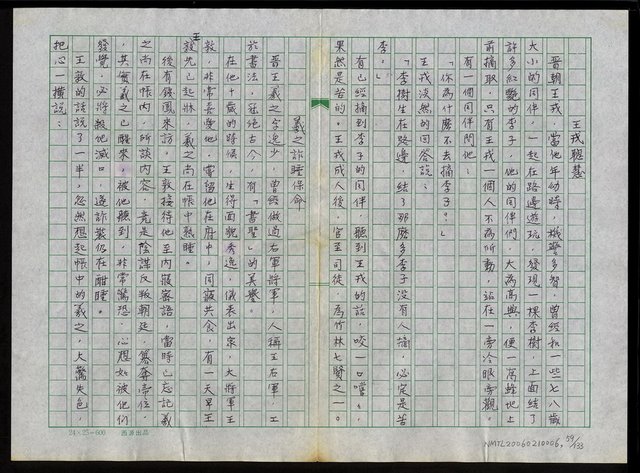 王戎聰慧
晉朝王戎，當他年幼時，機警多智，曾經和一些七八歲
大小的同伴，一起在路邊遊玩，發現一棵李樹，上面結了
許多紅艷的李子，他的同伴們，大為高興，便一窩蜂地上
前摘取，只有王戎一個人不為所動，站在一旁冷眼旁觀。
有一個同伴問他：
「你為什麼不去摘李子？」
王戎淡然的回答說：
「李樹生在路邊，結了那麼多李子沒有人摘，必定是苦
李。」
有已經摘到李子的同伴，聽到王戎的話，咬一口嚐，
果然是苦的。王戎成人後，官至司徒，為竹林七賢之一。
羲之詐睡保命
晉王羲之字逸少，曾經做過右軍將軍，人稱王右軍，工
於書法，冠絕古今，有「書聖」的美譽。
在他十歲的時候，生得面貌秀逸，儀表出眾，大將軍王
敦，非常喜愛他，常留他在府中，同寢共食，有一天早上
王敦先已起牀，羲之尚在帳中熟睡。
後有錢鳳來訪，王敦接待他至內寢密語，當時已忘記羲
之尚在帳內，所談內容，竟是陰謀反叛朝廷，篡奪帝位，
其實羲之已醒來，被他聽到，非常驚恐，心想如被他們
發覺，必將殺他滅口，遂詐裝仍在酣睡。
王敦的話說了一半，忽然想起帳中的羲之，大驚失色，
把心一橫說：
24×25=600
NMTL20060210006, 59/133